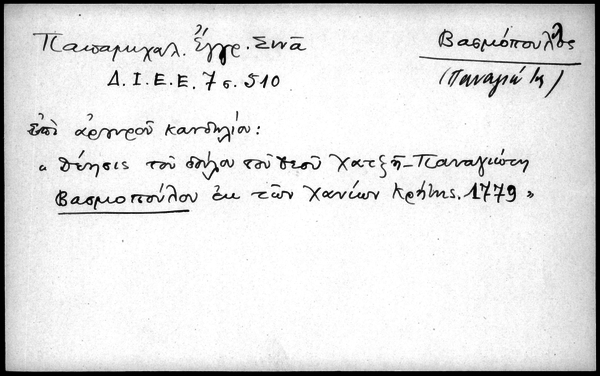 Παπαμιχαλ. Ἔγγρ. Σινᾶ
Βασμόπουλος
Δ. Ι. Ε. Ε. 7 σ. 510
(Παναγιώτης)
ἐπὶ ἀργυροῦ κανδηλίου:
« Δέησις τοῦ δούλου τοῦ θεοῦ Χατζῆ-Παναγιώτη
Βασμοπούλου ἐκ τῶν Χανίων Κρήτης. 1779 »